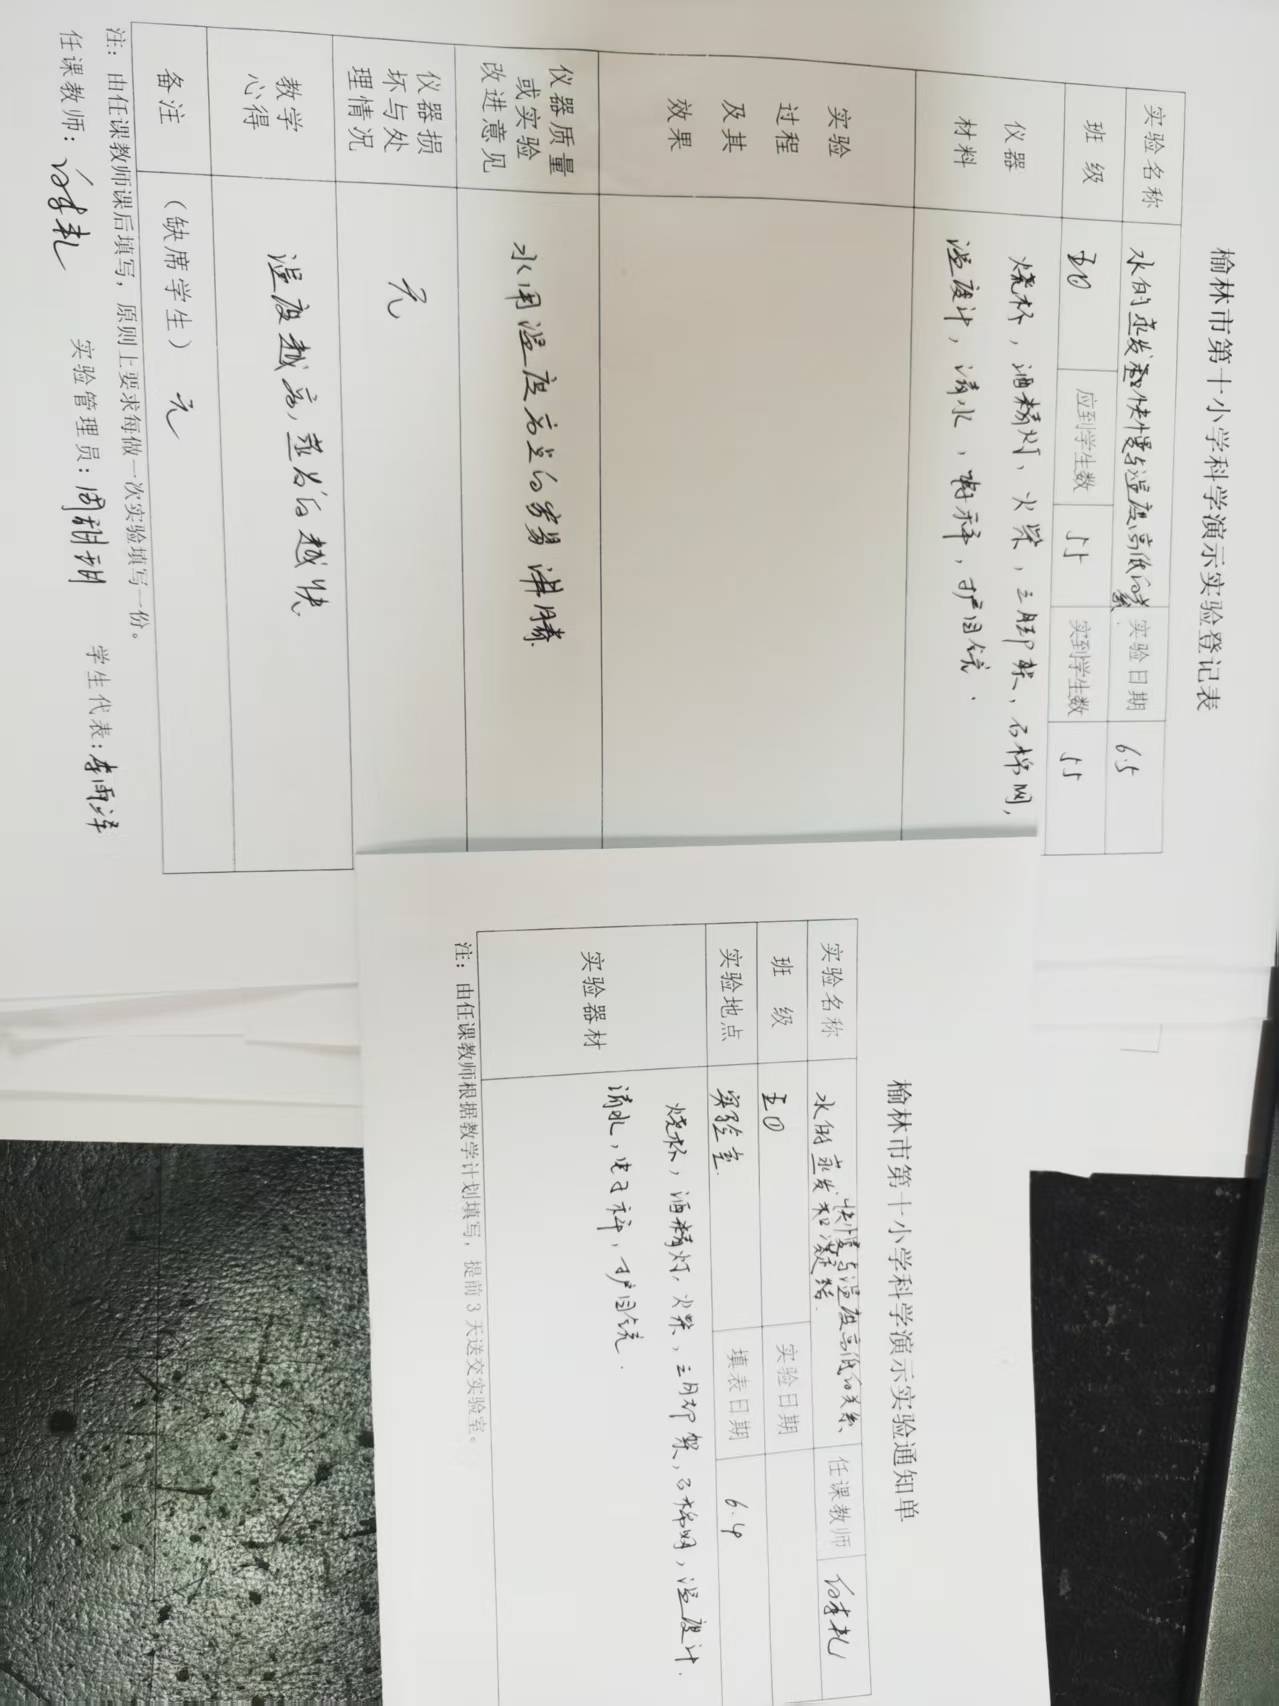 榆林市第十小学科学演示实验登记表
实验名称 水的蒸发快慢与温度高低的关系 实验日期 6.5
班 级 五① 应到学生数 55 实到学生数 55
仪器
材料
烧杯，酒精灯、火柴，三脚架，石棉网，
温度计，清水，放大镜
实验
过程
及其
效果
仪器质量
或实验
改进意见
水用温度高点的容易沸腾
仪器损
坏与处
理情况
无
教学
心得
温度越高，蒸发的越快
备注 （缺席学生） 无
注：由任课教师课后填写，原则上要求每做一次实验填写一份。
任课教师： 实验管理员：周甜甜 学生代表：李雨
榆林市第十小学科学演示实验通知单
实验名称 水的蒸发和凝结 快慢与温度高低的关系、 任课教师
班 级 五① 实验日期
实验地点 实验室 填表日期 6.4
实验器材
烧杯，酒精灯，火柴，三脚架，石棉网，温度计.
清水，电子秤，
注：由任课教师根据教学计划填写，提前 3 天送交实验室。